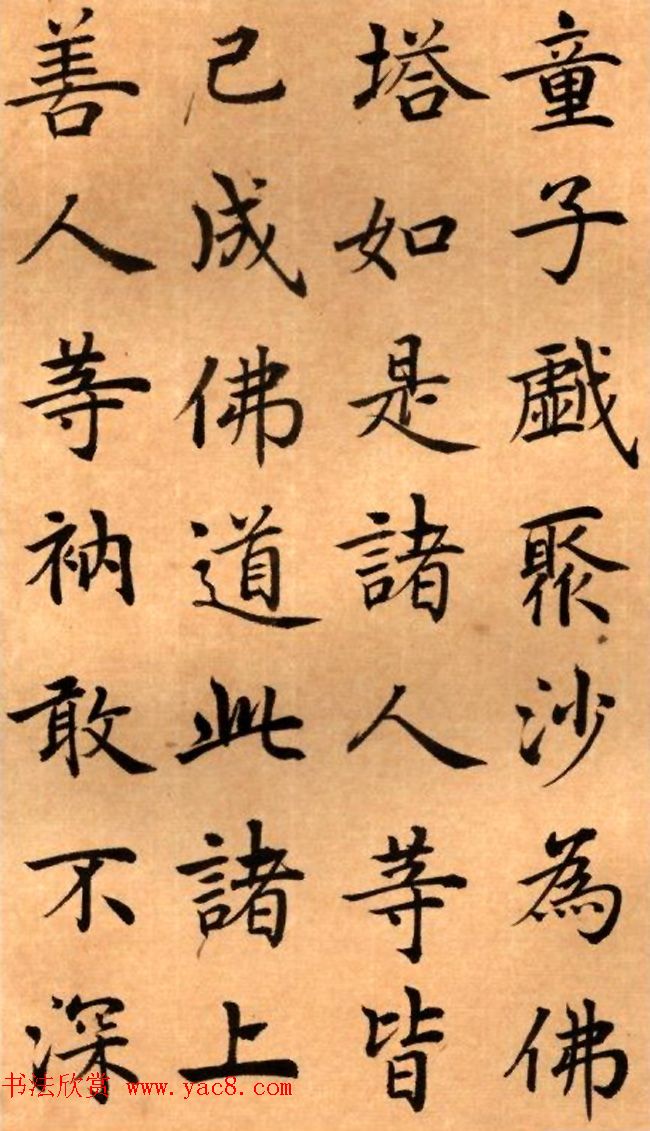 童子戯聚沙為佛
塔如是諸人等皆
已成佛道此諸上
善人等衲敢不深
书法欣赏 www.yac8.com